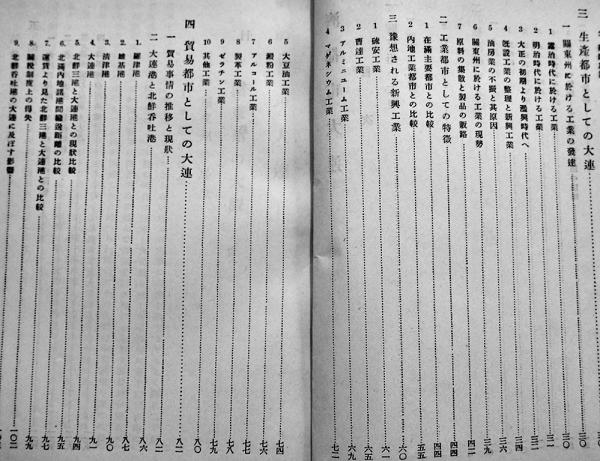 三 生產都市としての大連……三〇
一 關東州に於ける工業の發達……三〇
1 露治時代に於ける工業……三一
2 明治時代に於ける工業……三一
3 大正の初期より濫興時代へ……三二
4 既設工業の整理と新興工業……三五
5 油房業の不振と其原因……三九
6 關東州に於ける工業の現勢……四二
7 原料の集散と製品の販路……四四
二 工業都市としての特徵……四四
1 在滿主要都市との比較
2 內地工業都市との比較……五五
三 豫想される新興工業……六〇
1 硫安工業……六一
2 曹達工業……六二
3 アルミニユーム工業……六九
4 マグネシウム工業……七二
5 大豆油工業……七四
6 澱粉工業……七六
7 アルコール工業……七七
8 製革工業……七七
9 ゼラチン工業……七八
10 其他工業……七九
四 貿易都市としての大連……八二
一 貿易事情の推移と現狀……八二
二 大連港と北鮮吞吐港……八六
1. 羅津港……八七
2. 雄基港……八八
3. 淸津港……九〇
4. 大連港……九一
5. 北鮮三港と大連港との現狀比較……九四
6. 北滿內地諸港間輸送距離の比較……九五
7. 運賃より見た北鮮三港と大連港との比較……九六
8. 關稅制度上の得失……九九
9. 北鮮吞吐港の大連に及ぼす影響……一〇二